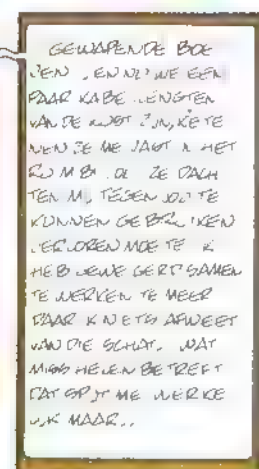 GEWAPENDE BOE
VEN EN NU WE EEN
PAAR KABE LENGTEN
VAN DE KUST ZIJN, KETE
NEN ZE ME VAST IN HET
RUIM ZE DACH
TEN MIJ TEGEN JOU TE
KUNNEN GEBRUIKEN
VERLOREN MOEITE IK
HEB GEWEIGERD SAMEN
TE WERKEN TE MEER
DAAR IK NIETS AFWEET
VAN DIE SCHAT. WAT
MISS HELEN BETREFT
DAT SPIJT ME WERKE
LIJK MAAR..